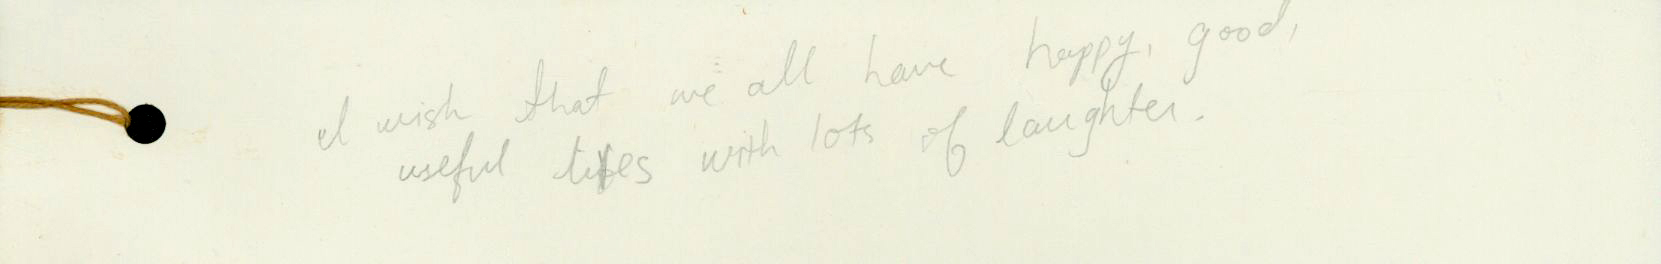 I wish that we all have happy, good,
useful lives with lots of laughter.